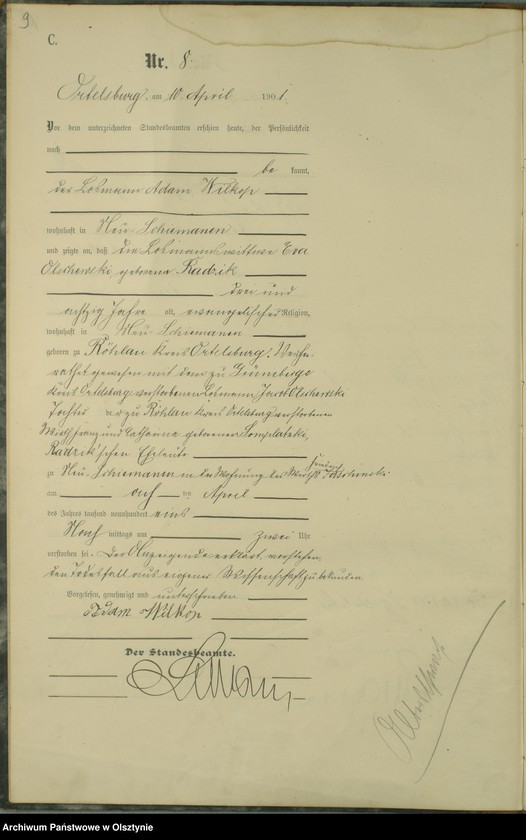 9
C.
Nr. 8
Ortelsburg, am 10 April 1901.
Vor dem unterzeichneten Standesbeamten erschien heute, der Persönlichkeit
nach
be kannt,
der Losmann Adam Wilkop
wohnhaft in Neu-Schiemanen
und zeigte an, daß die Losmannswittwe Eva
Olschewski geborene Radzik
drei und
achtzig Jahre alt, evangelischer Religion,
wohnhaft in Neu-Schiemanen
geboren zu Röblau Kreis Ortelsburg. Verhei-
rathet gewesen mit dem zu Grünberge
Kreis Ortelsburg verstorbenen Losmann Jacob Olschewski
Tochter der zu Röblau Kreis Ortelsburg verstorbenen
Wirth Franz und Catharina geborenen
Radzik'schen Eheleute
zu Neu-Schiemanen in der Wohnung des
am acht ten April
des Jahres tausend neunhundert eins
Nach mittags um zwei Uhr
verstorben sei. Der Anzeigende erklärt vorstehen-
den Todesfall aus eigener Wissenschaft zu bekunden
Vorgelesen, genehmigt und unterschrieben
Adam Wilkop
Der Standesbeamte.
Archiwum Państwowe w Olsztynie